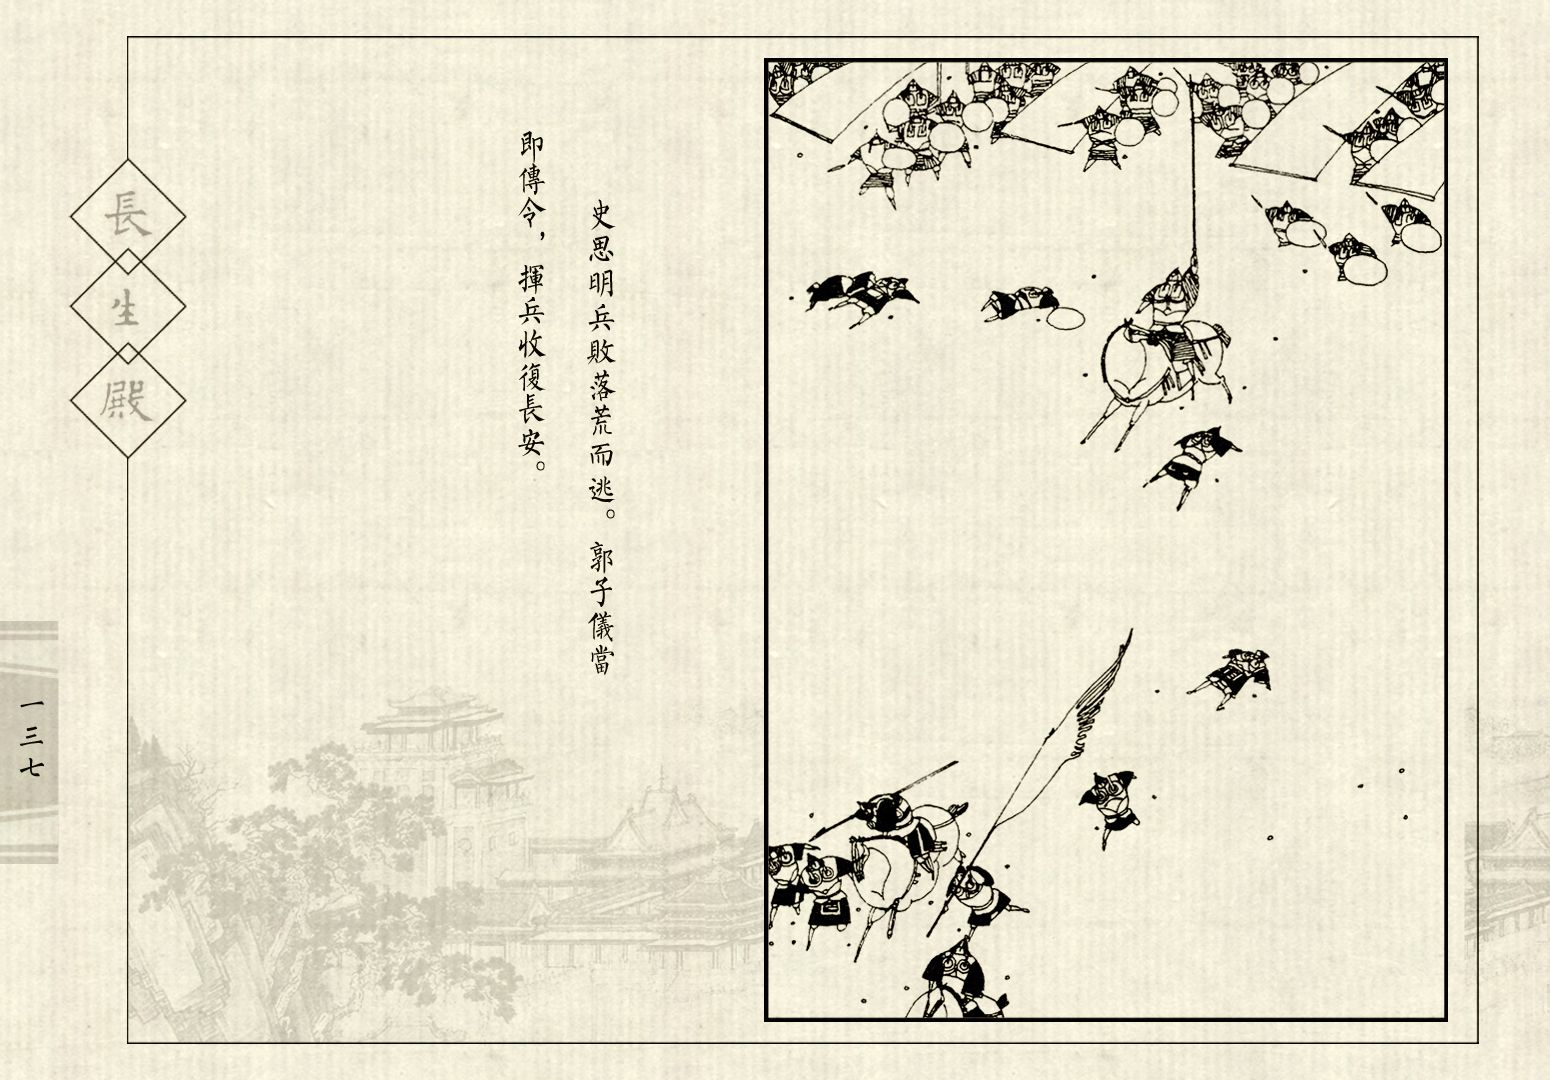 史思明兵敗落荒而逃。郭子儀當
即傳令，揮兵收復長安。
長生殿
一三七